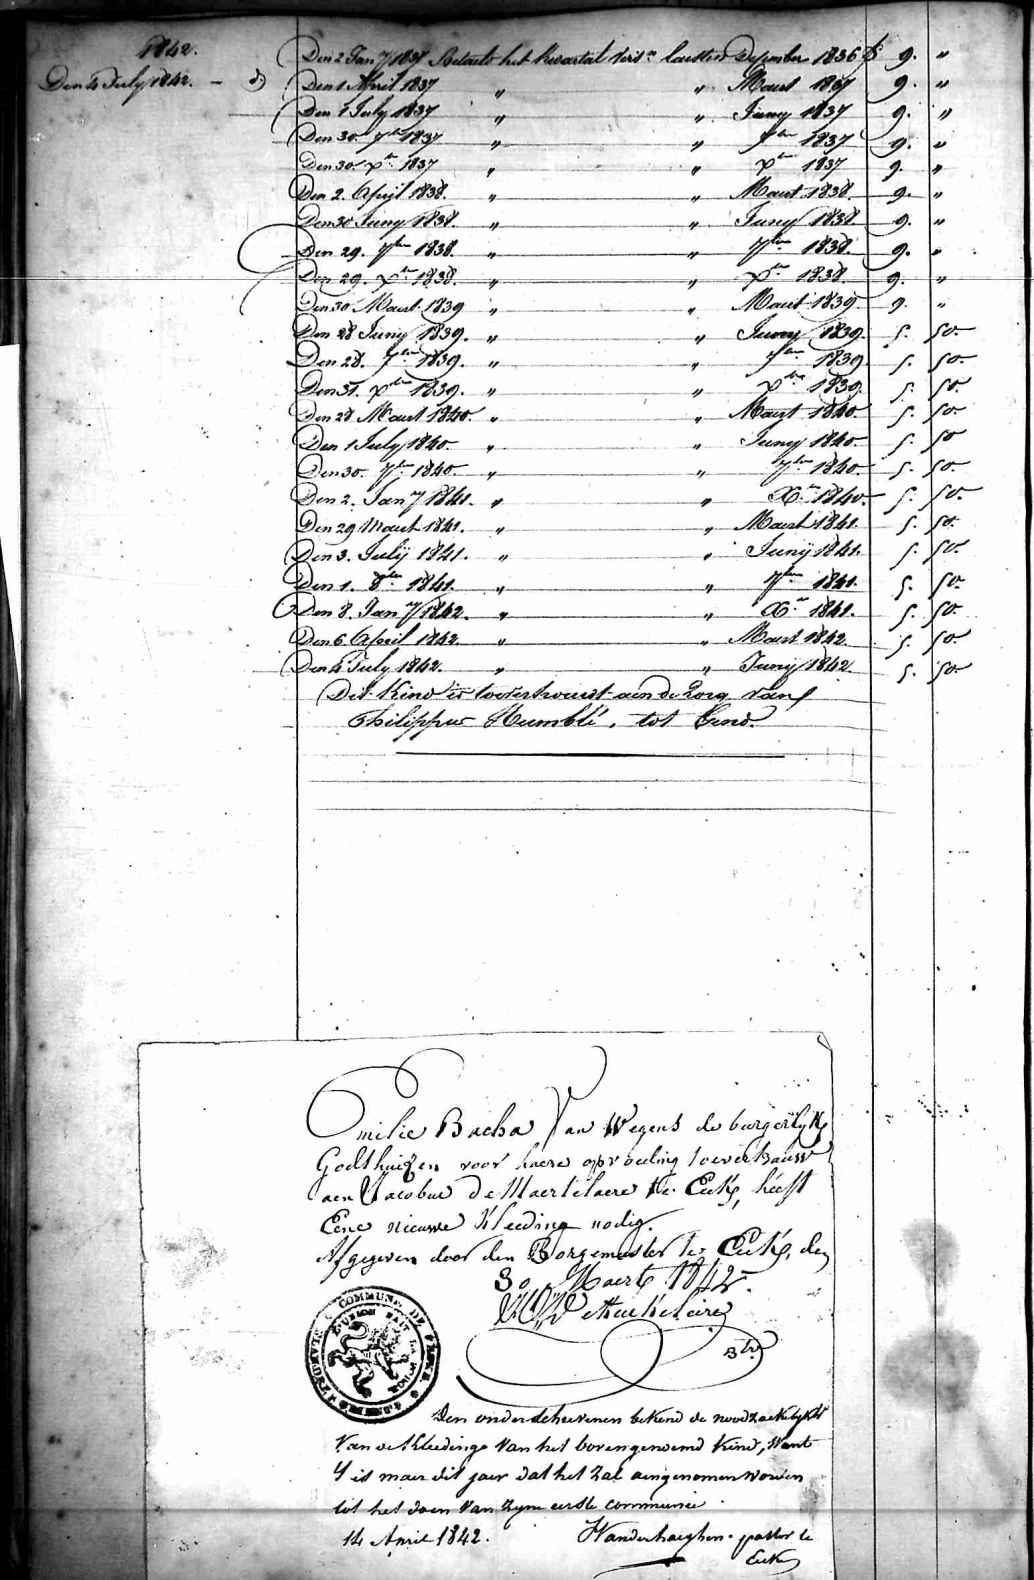 1842.
Den 4 July 1842. —
Den 2 Jan.y 1837 Betaelt het kwartal laetsten Desember 1836 f 9. "
Den 1 April 1837 " " Maert 1837 9. "
Den 1 July 1837 " " Juny 1837 9. "
Den 30. 7bre 1837 " " 7bre 1837 9. "
Den 30. Xbre 1837 " " Xbre 1837 9. "
Den 2. April 1838. " " Maert 1838. 9. "
Den 30 Juny 1838. " " Juny 1838. 9. "
Den 29. 7bre 1838. " " 7bre 1838. 9. "
Den 29. Xbre 1838. " " Xbre 1838. 9. "
Den 30 Maert 1839 " " Maert 1839. 9. "
Den 28 Juny 1839. " " Juny 1839. 5. 50.
Den 28. 7bre 1839. " " 7bre 1839 5. 50.
Den 31. Xbre 1839. " " Xbre 1839. 5. 50.
Den 28 Maert 1840. " " Maert 1840. 5. 50.
Den 1 July 1840. " " Juny 1840. 5. 50
Den 30. 7bre 1840. " " 7bre 1840. 5. 50.
Den 2. Jan.y 1841. " " Xbre 1840. 5. 50.
Den 29 Maert 1841. " " Maert 1841. 5. 50.
Den 3. Julij 1841. " " Junij 1841. 5. 50.
Den 1. 8bre 1841. " " 7bre 1841. 5. 50.
Den 8. Jan.y 1842. " " Xbre 1841. 5. 50.
Den 6 April 1842. " " Maert 1842. 5. 50
Den 4 July 1842. " " Junij 1842 5. 50.
Dit Kind is toevertrouwt aen de zorg van
Philippus Humblé, tot Gend.
Emilie Bacha Van Wegens de burgerlyke
Godthuizen voor haere opvoeding toevertrauwt
aen Jacobus De Maertelaere te Eeke, heeft
Eene nieuwe Kleeding nodig.
Afgegeven door den Borgemeester te Eeke, den
30 Maerte 1842.
COMMUNE DE
L'UNION FAIT LA FORCE
Den onderscheevenen bekend de noodzaekelykht
Van de Kleedinge Van het bovengenoemd Kind, Want
't is maer dit jaer dat het zal aengenomen worden
tot het doen Van zyne eerste communie.
14 April 1842. Vanderhaeghen. pastor te
Eeke